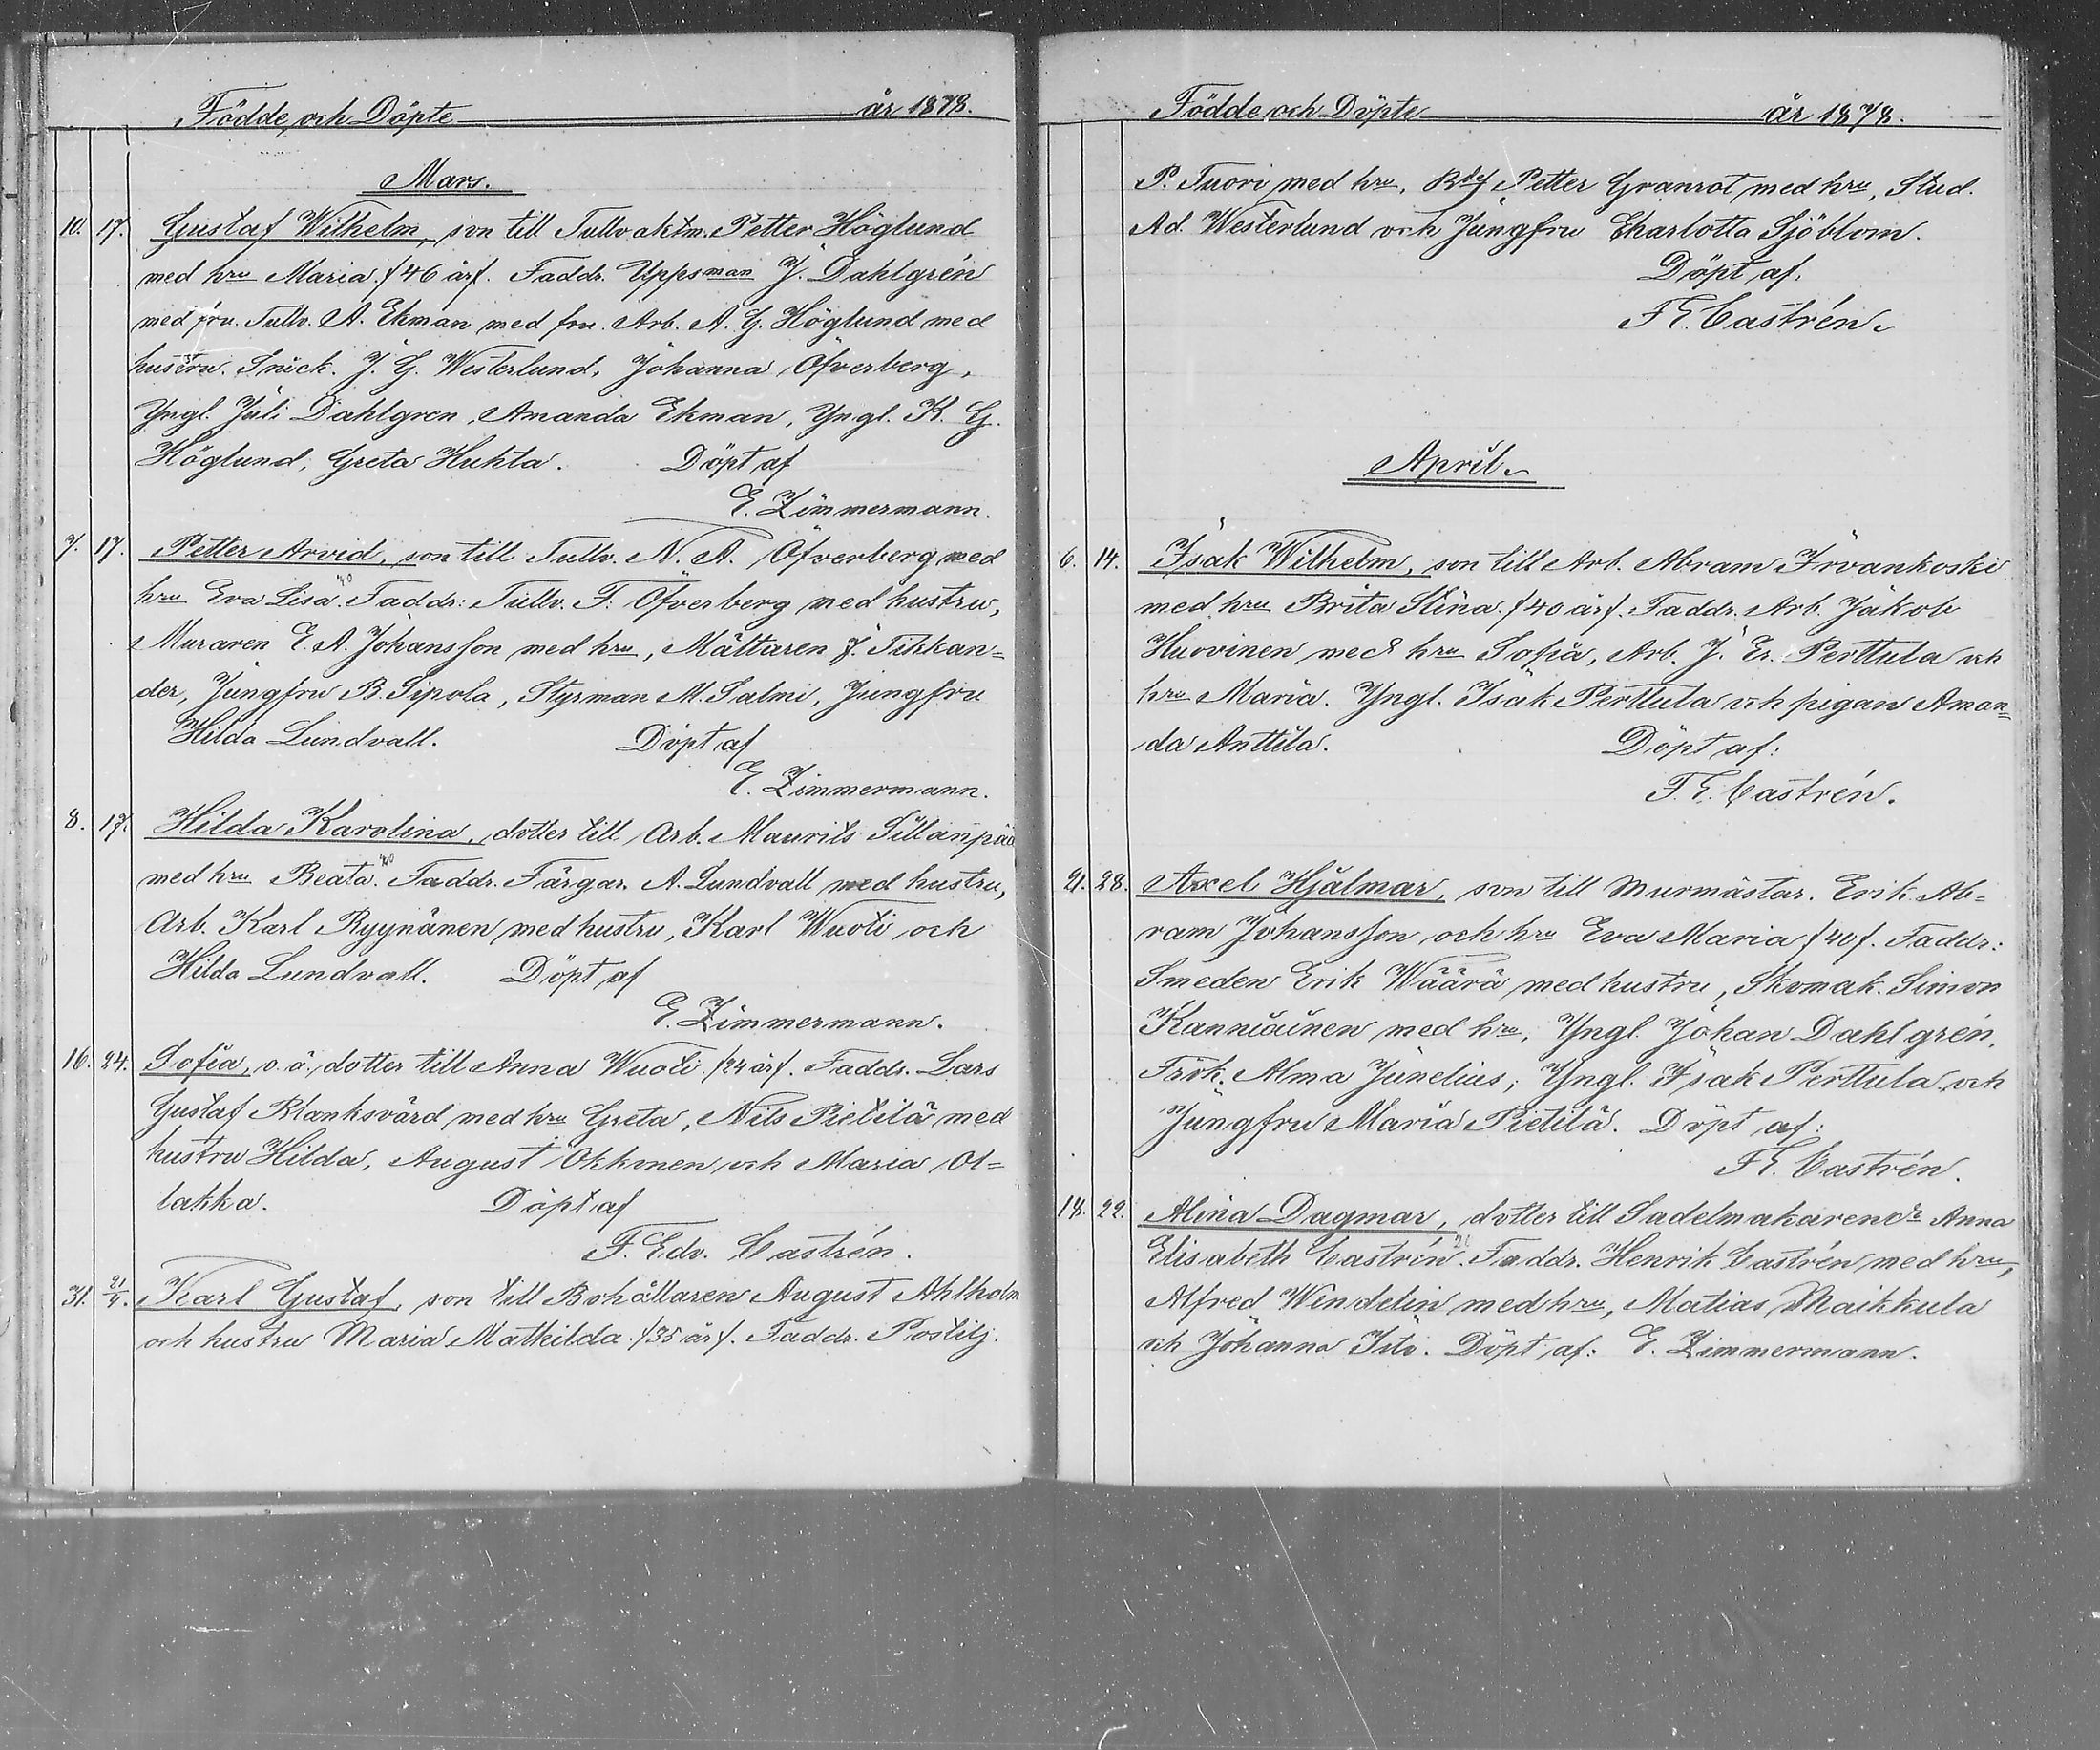 Födde och Döpte år 1878.
Mars.
10. 17. Gustaf Wilhelm, son till Tullvaktm. Petter Höglund
med hru Maria. /46 år/. Faddr. Uppsman J. Dahlgrén
med fru. Tullv. A. Ekman med fru. Arb. A. G. Höglund med
hustru. Snick. J. G. Westerlund, Johanna Öfverberg,
Yngl. Juli Dahlgren, Amanda Ekman, Yngl. K. G.
Höglund, Greta Huhta. Döpt af
E. Zimmermann.
7. 17. Petter Arvid, son till Tullv. N. A. Öfverberg med
hru Eva Lisa. 40 Faddr: Tullv. F. Öfverberg med hustru,
Muraren E. A. Johansson med hru, Mättaren J. Tikkan=
der, Jungfru B. Sipola, Styrman M. Salmi, Jungfru
Hilda Lundvall. Döpt af
E. Zimmermann.
8. 17. Hilda Karolina, dotter till Arb. Maurits Sillanpää
med hru Beata. 40 Faddr. Färgar. A. Lundvall med hustru,
Arb. Karl Ryynänen med hustru, Karl Wuoti och
Hilda Lundvall. Döpt af
E. Zimmermann.
16. 24. Sofia, o. ä. dotter till Anna Wuoti. /24 år/. Faddr. Lars
Gustaf Blanksvärd med hru Greta, Nils Pietilä med
hustru Hilda, August Okkonen och Maria Ol=
lakka. Döpt af
F. Edv. Castrén.
31. 21/4. Karl Gustaf, son till Bohållaren August Ahlholm
och hustru Maria Mathilda. /35 år/. Faddr. Postilj.
Födde och Döpte år 1878.
P. Tuori med hru, Petter Granrot med hru, Stud.
Ad. Westerlund och Jungfru Charlotta Sjöblom.
Döpt af.
F. E. Castrén.
April.
6. 14. Isak Wilhelm, son till Arb. Abram Irvankoski
med hru Brita Stina. /40 år/. Faddr. Arb. Jakob
Huovinen med hru Sofia, Arb. J. Er. Perttula och
hru Maria. Yngl. Isak Perttula och pigan Aman=
da Anttila. Döpt af:
F. E. Castrén.
21. 28. Axel Hjalmar, son till Murmästar. Erik Ab=
ram Johansson och hru Eva Maria /40/. Faddr:
Smeden Erik Wäärä med hustru, Skomak. Simon
Kanniainen med hru, Yngl. Johan Dahlgrén,
Frök. Alma Junelius, Yngl. Isak Perttula och
Jungfru Maria Pietilä. Döpt af:
F. E. Castrén.
18. 22. Alina Dagmar, dotter till Sadelmakarend:r Anna
Elisabeth Castrén. Faddr. Henrik Castrén med hru,
Alfred Windelin med hru, Matias Maikkula
och Johanna Döpt af: E. Zimmermann.